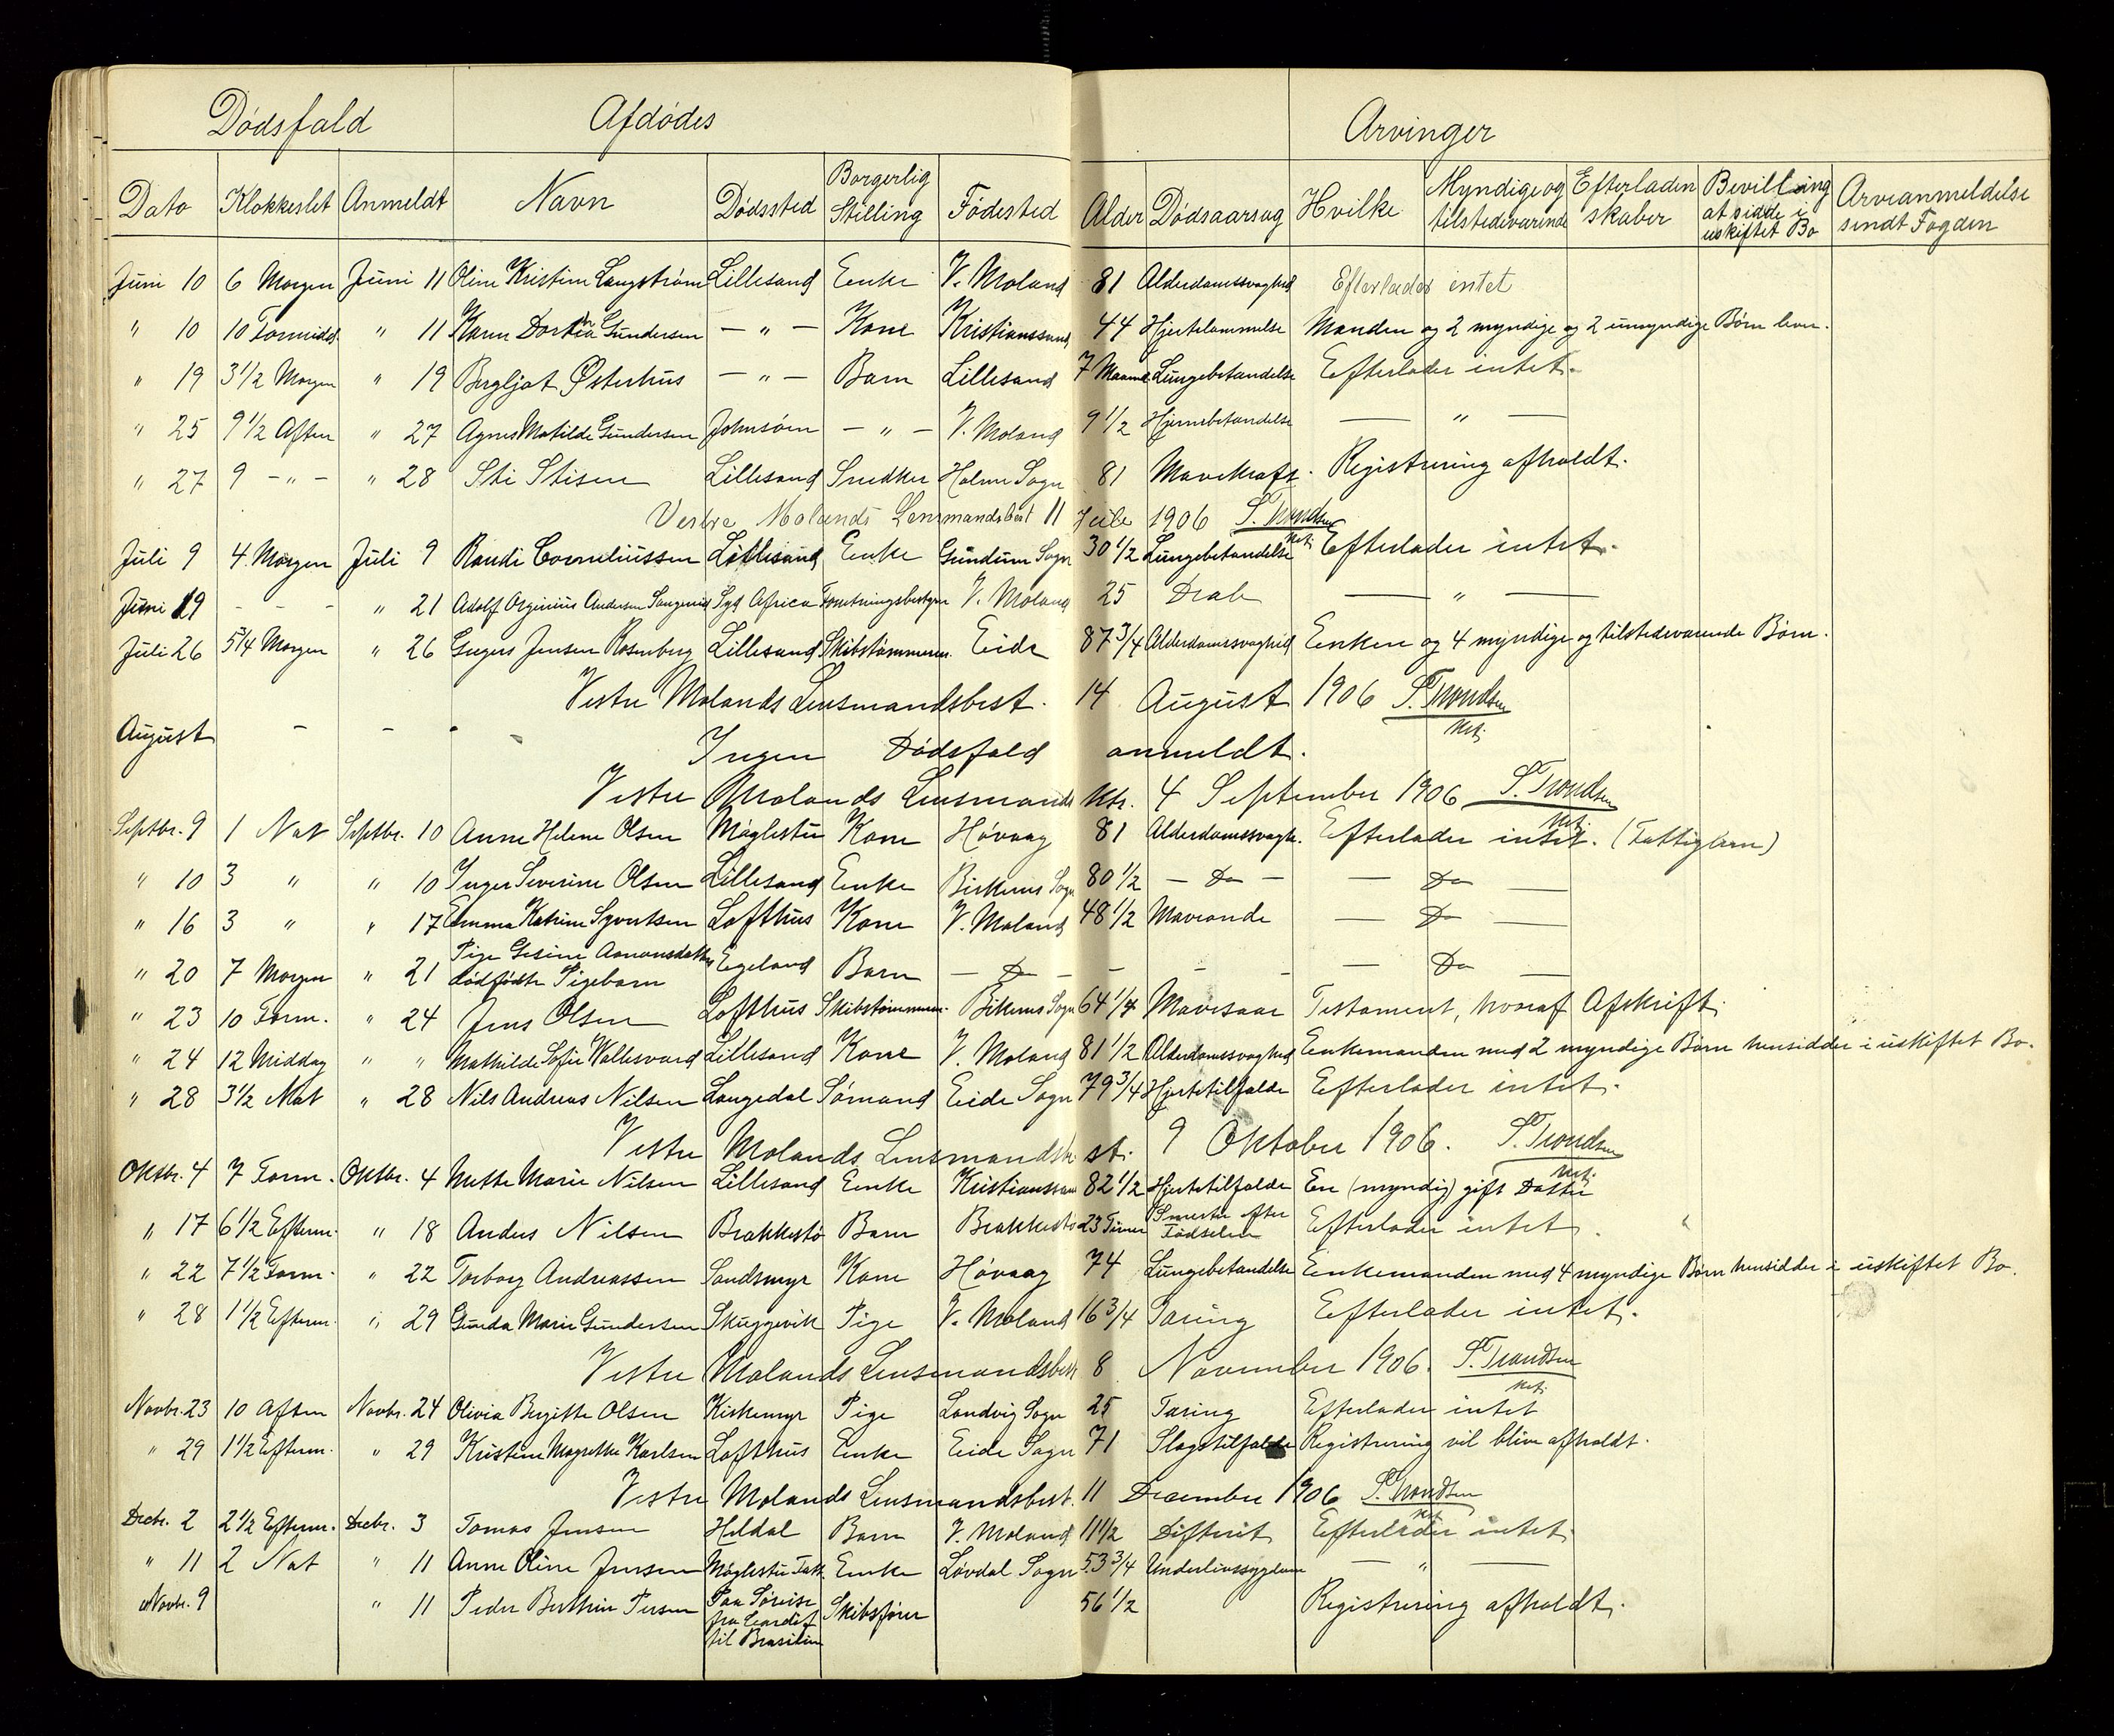 Dødsfald Afdødes Arvinger
Dato Klokkeslet Anmeldt Navn Dødssted Borgerlig Stilling Fødested Alder Dødsaarsag Hvilke Myndige og tilstedeværende Efterladenskaber Bevilling at sidde i uskiftet Bo Arveanmeldelse sendt Fogden
Juni 10 6 Morgen Juni 11 Oline Kristine Langstrøm Lillesand Enke V. Moland 81 Alderdomssvaghed Efterlader intet
" 10 10 Formidd. " 11 Karen Dorthea Gundersen — " — Kone Kristianssand 44 Hjertelammelse Manden og 2 myndige og 2 umyndige Børn lever.
" 19 3 1/2 Morgen " 19 Bergljot Østerhus — " — Barn Lillesand 7 Maaned Lungebetændelse Efterlader intet.
" 25 9 1/2 Aften " 27 Agnes Matilde Gundersen Johnsøen — " — V. Moland 9 1/2 Hjernebetændelse — " —
" 27 9 — " — " 28 Sti Stisen Lillesand Snedker Holme Sogn 81 Mavekræft. Registrering afholdt.
Vestre Molands Lensmandsbest 11 Juli 1906 S. Trondsen
kst.
Juli 9 4 Morgen Juli 9 Randi Corneliussen Lillesand Enke Sogn 30 1/2 Lungebetændelse Efterlader intet.
Juni 19 - - - " 21 Adolf Anderssen Syd Africa Forretningsbestyrer V. Moland 25 Drab — " —
Juli 26 5 3/4 Morgen " 26 Jensen Rosenberg Lillesand Skibstømmerm. Eide 87 3/4 Alderdomssvaghed Enken og 4 myndige og tilstedeværende Børn.
Vestre Molands Lensmandsbest. 14 August 1906 S. Trondsen
kst.
August - - -
Ingen Dødsfald anmeldt.
Vestre Molands Lensmands ktr. 4 September 1906 S. Trondsen
kst.
Septbr. 9 1 Nat Septbr. 10 Anne Helene Olsen Møglestu Kone Høvaag 81 Alderdomssvagh. Efterlader intet. (Fattiglem)
" 10 3 " " 10 Inger Severine Olsen Lillesand Enke Birkenes Sogn 80 1/2 — Do — — Do —
" 16 3 " " 17 Emma Katrine Syvertsen Lofthus Kone V. Moland 48 1/2 Maveonde — Do —
" 20 7 Morgen " 21 Pige Gesine Aanonsdatters dødfødte Pigebarn Egeland Barn — Do — - - - — Do —
" 23 10 Form. " 24 Jens Olsen Lofthus Skibstømmerm. Birkenes Sogn 64 1/4 Mavesaar Testament, hvoraf Afskrift.
" 24 12 Middag " " Mathilde Sofie Vallesværd Lillesand Kone V. Moland 81 1/2 Alderdomssvaghed Enkemanden med 2 myndige Børn hensidder i uskiftet Bo.
" 28 3 1/2 Nat " 28 Nils Andreas Nilsen Langedal Sømand Eide Sogn 79 3/4 Hjertetilfælde Efterlader intet.
Vestre Molands Lensmandsbest. 9 Oktober 1906. S. Trondsen
kst.
Oktbr. 4 7 Form. Oktbr. 4 Mette Marie Nilsen Lillesand Enke Kristianssand 82 1/2 Hjertetilfælde En (myndig) gift Datter
" 17 6 1/2 Efterm. " 18 Anders Nilsen Brækkestø Barn Brækkestø 23 Timer Smerter efter Fødselen Efterlader intet.
" 22 7 1/2 Form. " 22 Torborg Andreassen Sandsmyr Kone Høvaag 74 Lungebetændelse Enkemanden med 4 myndige Børn hensidder i uskiftet Bo.
" 28 1 1/2 Efterm. " 29 Gunda Marie Gundersen Skuggevik Pige V. Moland 16 3/4 Tæring Efterlader intet.
Vestre Molands Lensmandsbest 8 November 1906. S. Trondsen
kst.
Novbr. 23 10 Aften Novbr. 24 Olivia Birgitte Olsen Kirkemyr Pige Landvig Sogn 25 Tæring Efterlader intet
" 29 1 1/2 Efterm. " 29 Kristine Magrethe Karlsen Lofthus Enke Eide Sogn 71 Slagtilfælde Registrering vil blive afholdt.
Vestre Molands Lensmandsbest. 11 December 1906 S. Trondsen
kst
Decbr. 2 2 1/2 Efterm. Decbr. 3 Tomas Jensen Heldal Barn V. Moland 11 1/2 Difterit Efterlader intet.
" 11 2 Nat " 11 Anne Oline Jensen Møglestu Fatt. Enke Løvdal Sogn 53 3/4 Underlivssygdom — " —
Novbr. 9 " 11 Peder Berthin Persen Paa Søreise fra Cardif til Brasilien Skibsfører 56 1/2 Registrering afholdt.